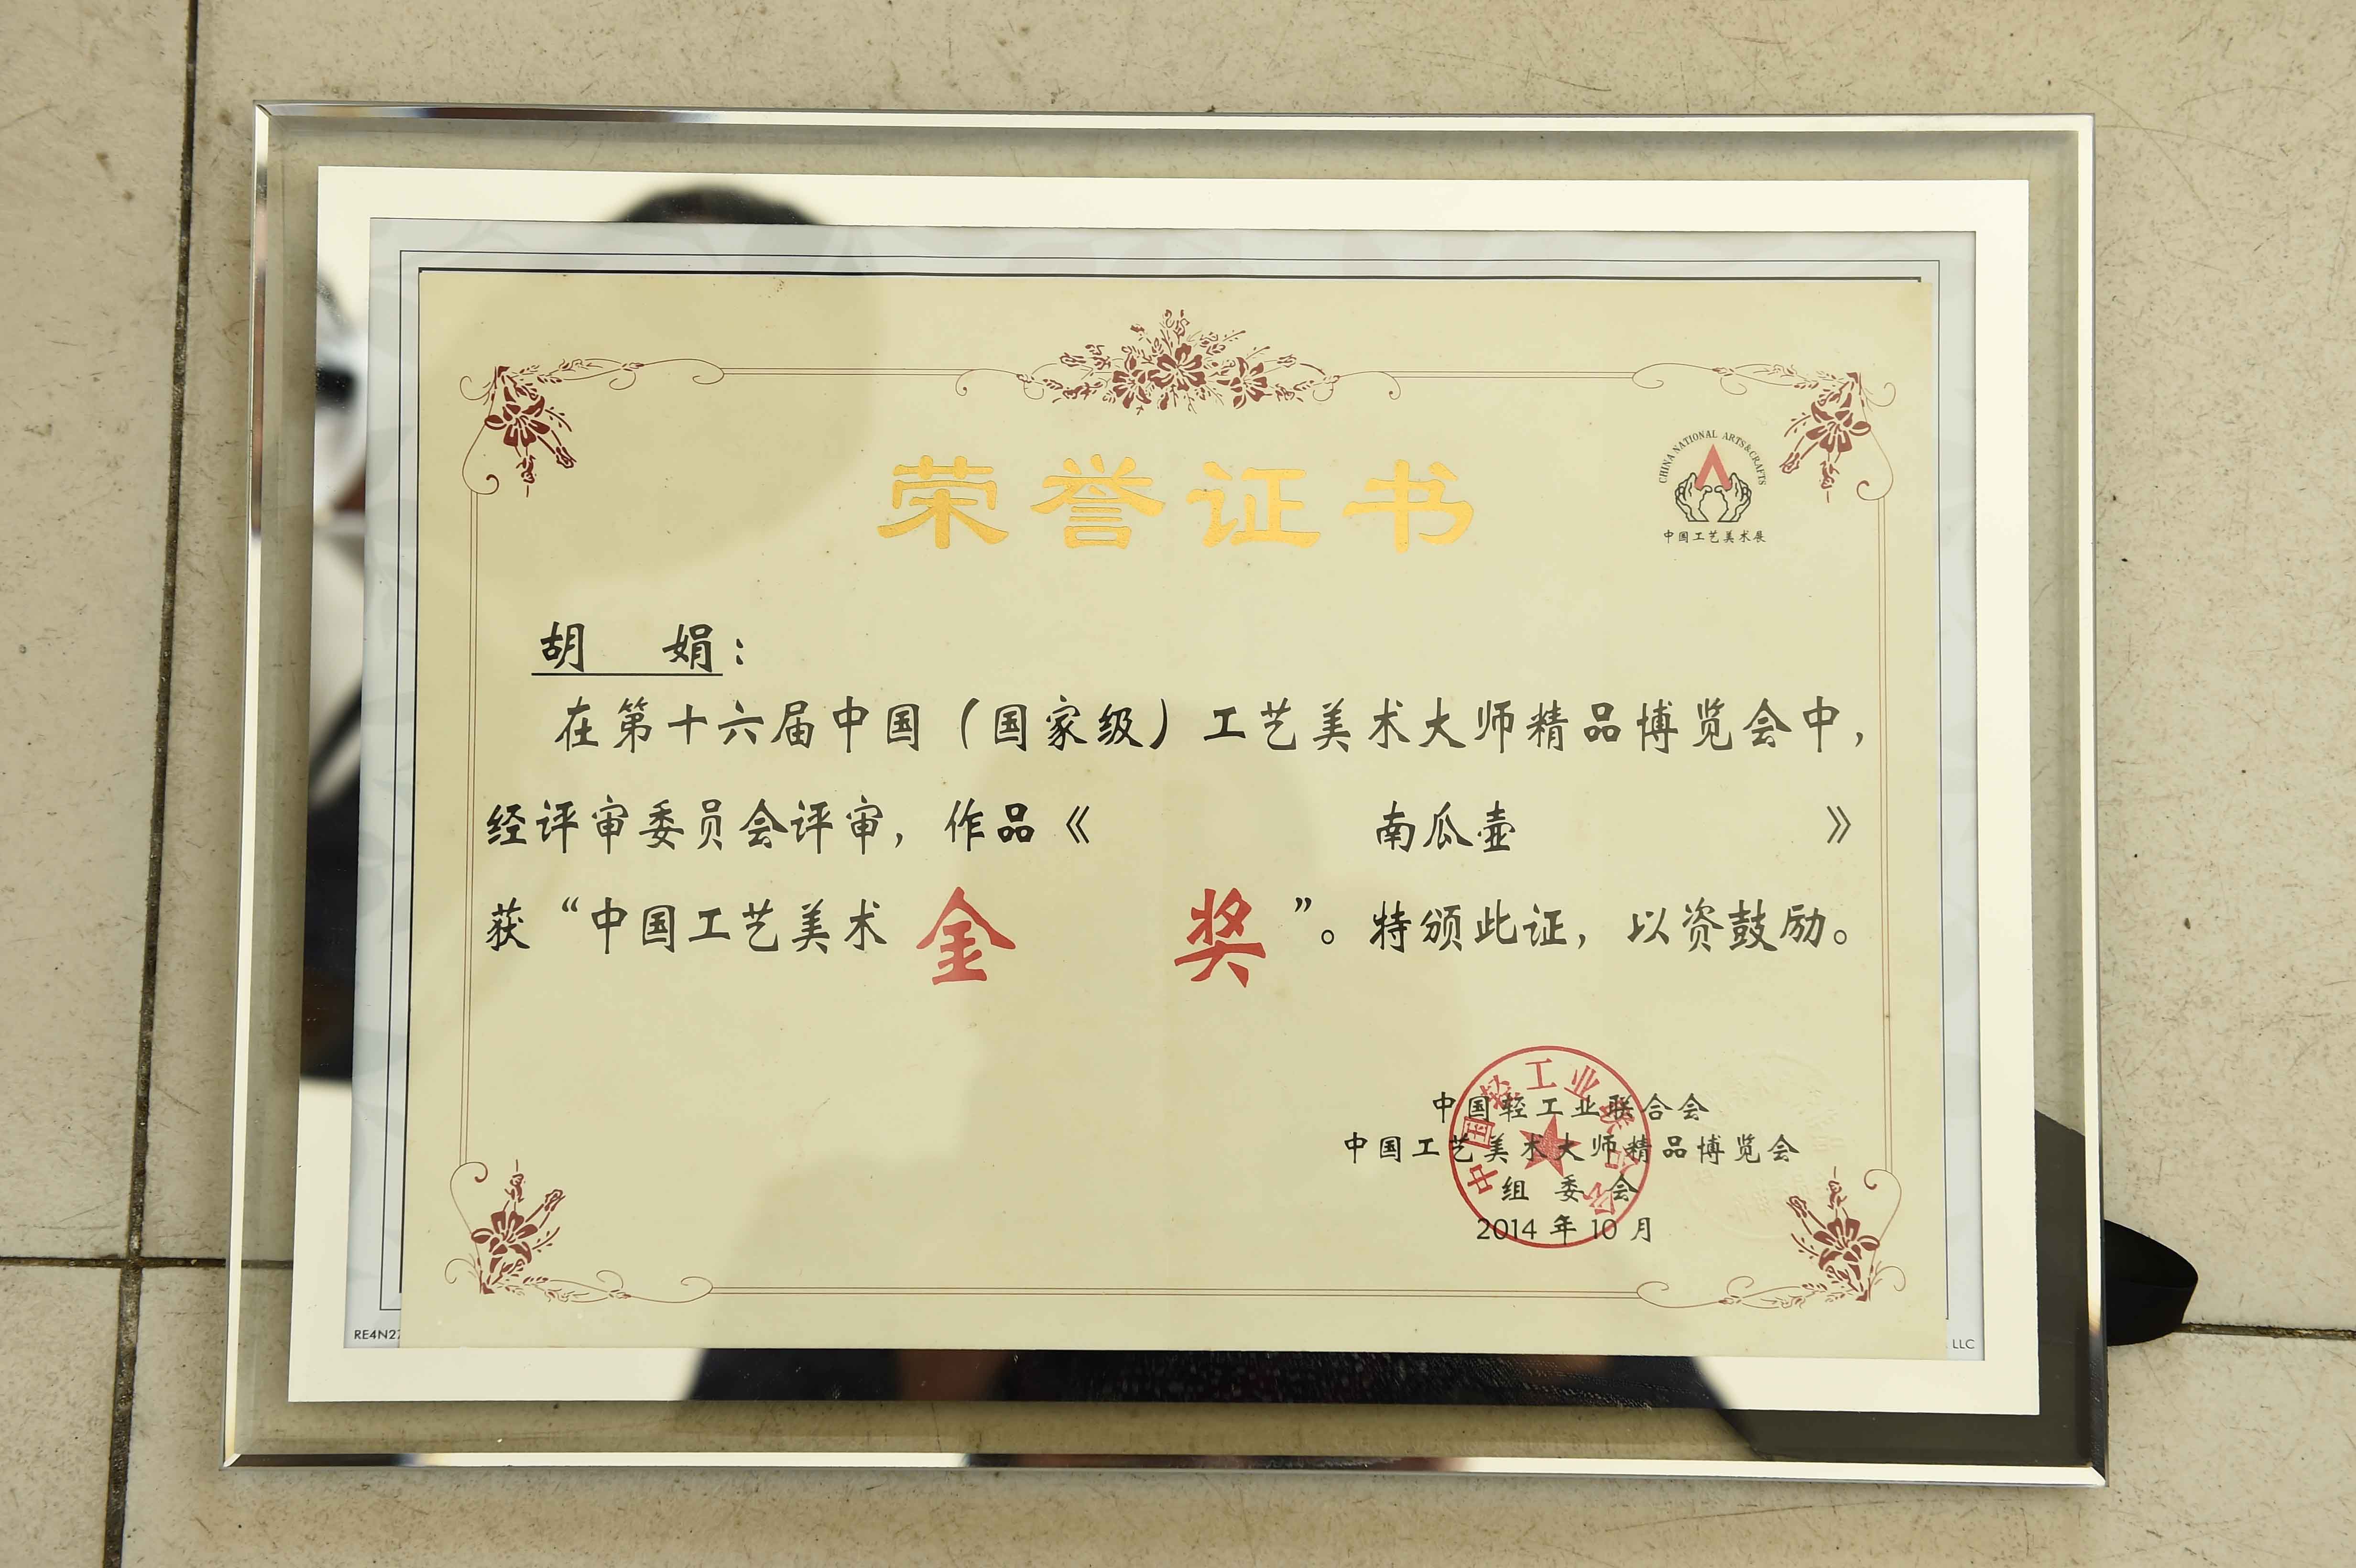 荣誉证书
CHINA NATIONAL ARTS&CRAFTS
中国工艺美术展
胡 娟：
在第十六届中国（国家级）工艺美术大师精品博览会中，
经评审委员会评审，作品《 南瓜壶 》
获“中国工艺美术 金 奖”。特颁此证，以资鼓励。
中国轻工业联合会
中国轻工业联合会
中国工艺美术大师精品博览会
组 委 会
2014 年 10 月
RE4N27
LLC